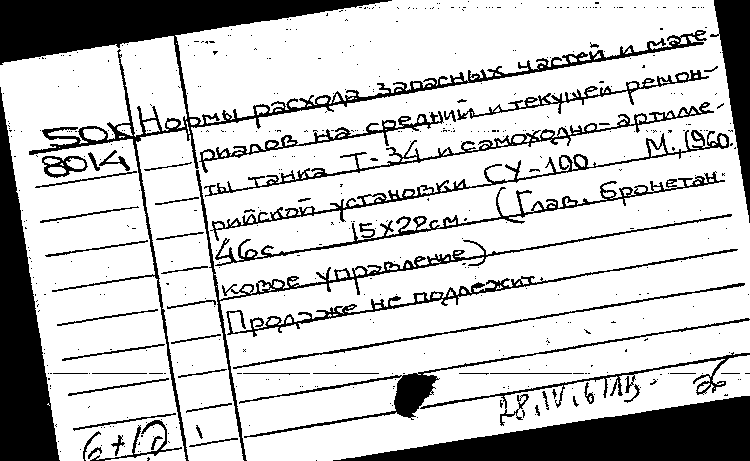 50К Нормы расхода запасных частей и мате-
80К риалов на средний и текущей ремон-
ты танка Т-34 и самоходно-артилле-
рийской установки СУ-100. М., 1960.
46с. 15х22см. (Глав. бронетан-
ковое управление).
Продаже не подлежит.
28.IV.61